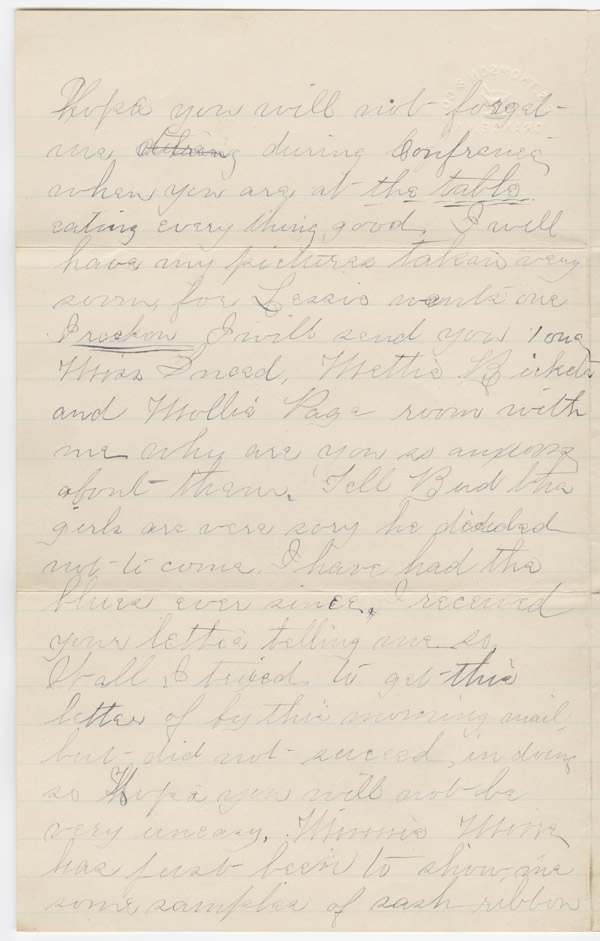 Hope you will not forget
me during Confrence
when you are at the table
eating every thing good. I will
have my pictures taken very
soon, for Lessie wants one
I reckon I will send you 1 one
Miss Sneed, Mettie B
and Mollie Page room with
me why are you so anxious
about them. Tell Bud the
girls are vere sory he decided
not to come. I have had the
blues ever since, I received
your letter telling me so
Wall I tried to get this
letter of by this morning mail,
but did not suceed in doing
so Hope you will not be
very uneasy. Minnie
has just been to show me
some samples of sash ribbon